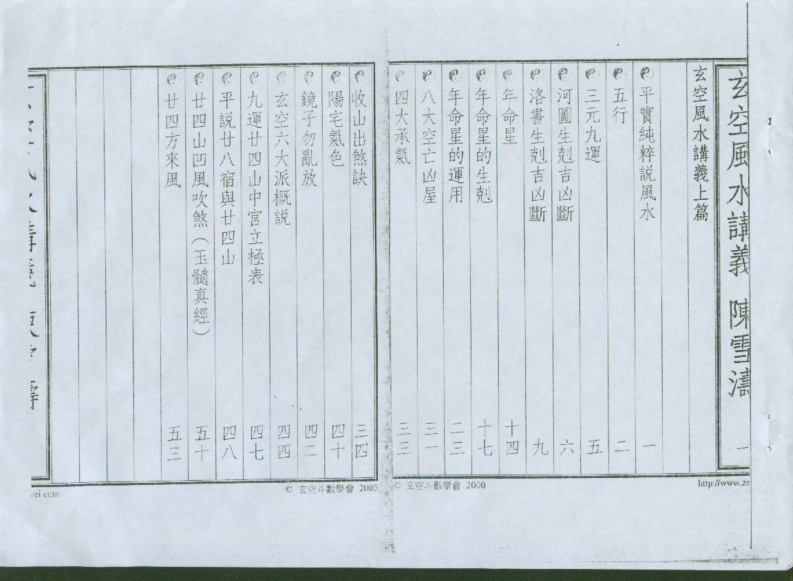 玄空風水講義 陳雪濤 一
玄空風水講義上篇
平實純粹說風水 一
五行 二
三元九運 五
河圖生剋吉凶斷 六
洛書生剋吉凶斷 九
年命星 十四
年命星的生剋 十七
年命星的運用 二三
八大空亡凶屋 三一
四大承氣 三三
http://www.ze
© 玄空斗數學會 2000
收山出煞訣 三四
陽宅氣色 四十
鏡子勿亂放 四二
玄空六大派概説 四四
九運廿四山中宮立極表 四七
平説廿八宿與廿四山 四八
廿四山凹風吹煞（玉髓真經） 五十
廿四方來風 五三
© 玄空斗數學會 2000
wei.com